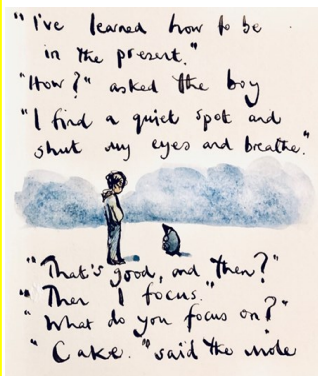 "I've learned how to be
in the present."
"How?" asked the boy
"I find a quiet spot and
shut my eyes and breathe."
"That's good, and then?"
"Then I focus."
"What do you focus on?"
"Cake." said the mole